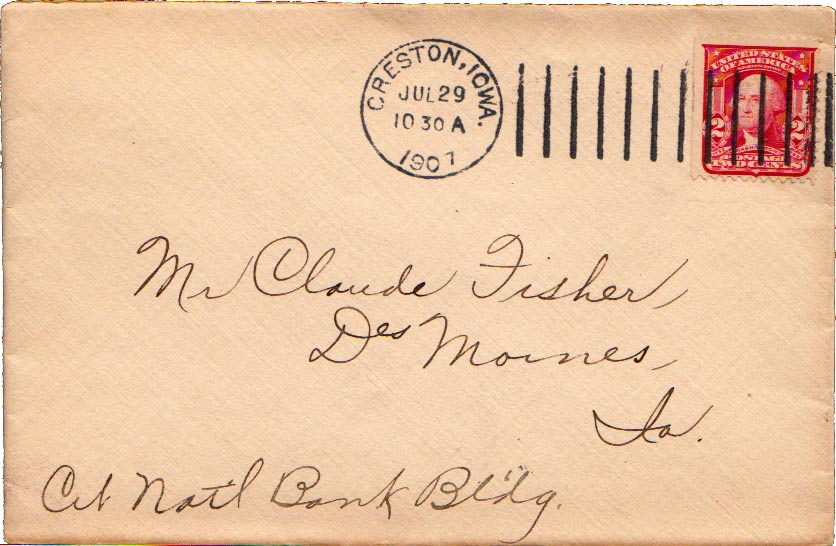 CRESTON, IOWA.
JUL 29
10 30 A
1907
UNITED STATES
OF AMERICA
2 2
POSTAGE
TWO CENTS
Mr Claude Fisher,
Des Moines,
Ia.
Cit Nat'l Bank Bldg.